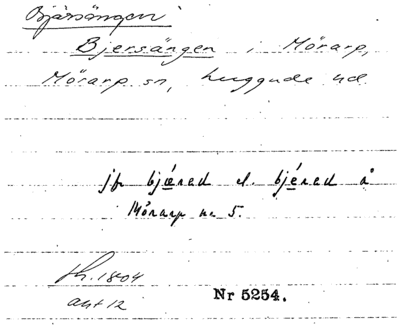 Bjärsängen
Bjersängen i Mörarp,
Mörarp sn, Luggude hd.
jfr bjæred el. bjéred å
Mörarp nr 5.
sh. 1804
akt 12
Nr 5254.